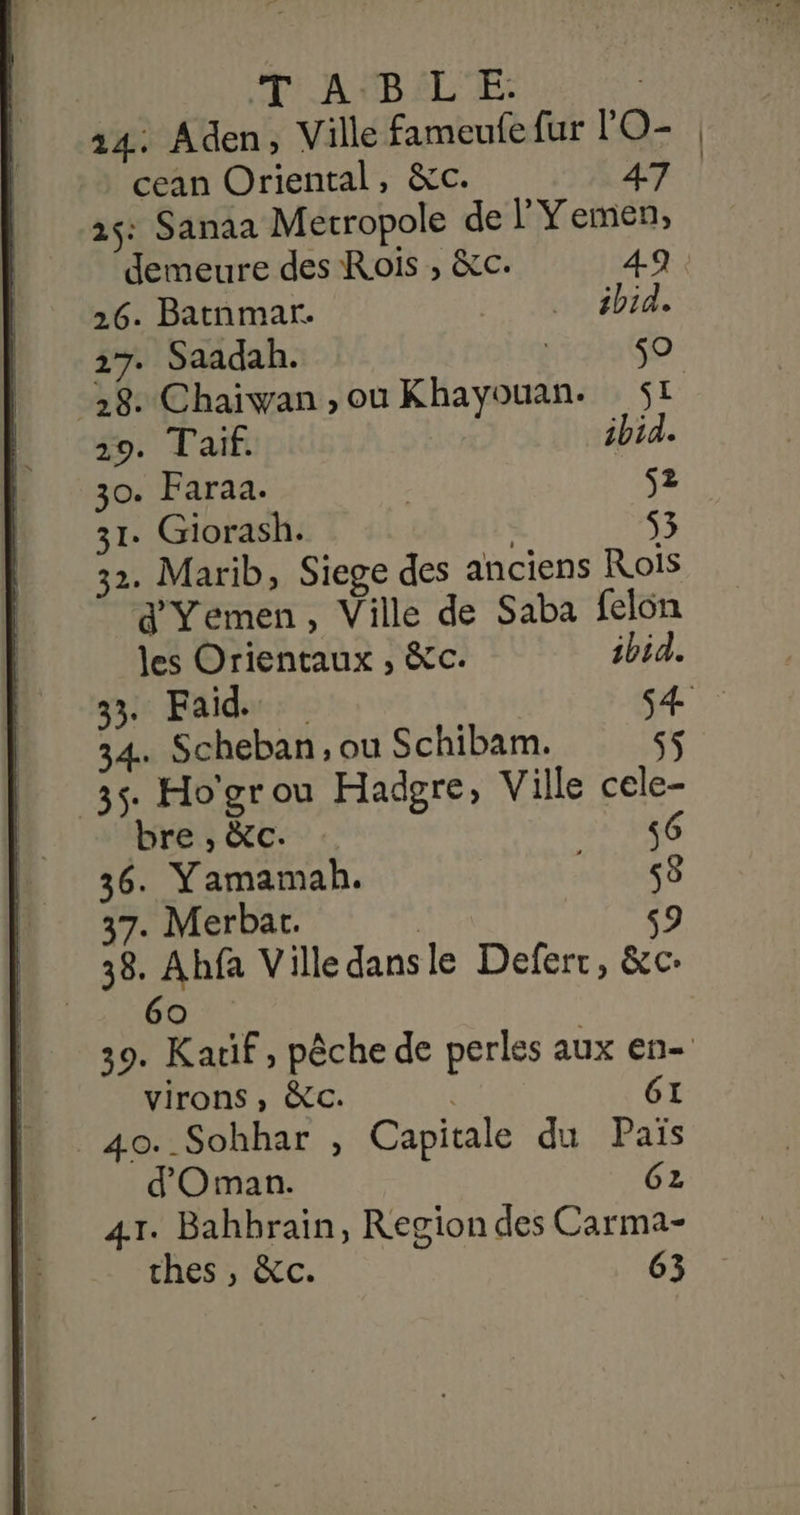 TABLE.
24. Aden, Ville fameuſe ſur l'O-
cean Oriental, &c. 47
25. Sanaa Metropole de l'Yemen,
demeure des Rois, &c. 49
26. Batnmar. ibid.
27. Saadah. 50
28. Chaiwan, ou Khayouan. 51
29. Taif. ibid.
30. Faraa. 52
31. Giorash. 53
32. Marib, Siege des anciens Rois
d'Yemen, Ville de Saba ſelon
les Orientaux, &c. ibid.
33. Faid. 54
34. Scheban, ou Schibam. 55
35. Ho'gr ou Hadgre, Ville cele-
bre, &c. 56
36. Yamamah. 58
37. Merbat. 59
38. Ahſa Ville dans le Deſert, &c.
60
39. Katif, pêche de perles aux en-
virons, &c. 61
40. Sohhar, Capitale du Païs
d'Oman. 62
41. Bahhrain, Region des Carma-
thes, &c. 63